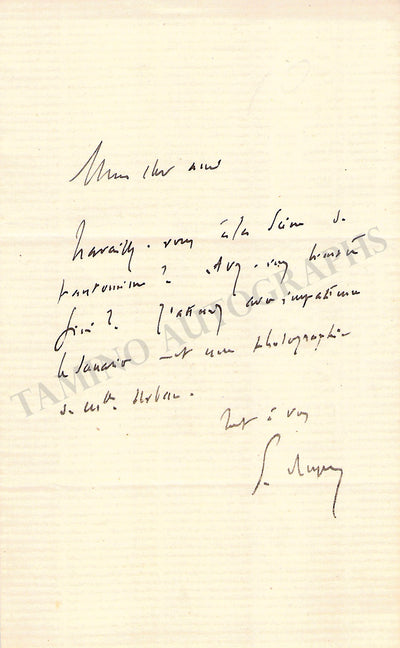 Mon cher ami
Travaillez-vous à la Scène de
pantomime ? Avez-vous bientôt
fini ? J'attends avec impatience
le scénario et une photographie
de Mlle
Tout à vous
TAMINO AUTOGRAPHS